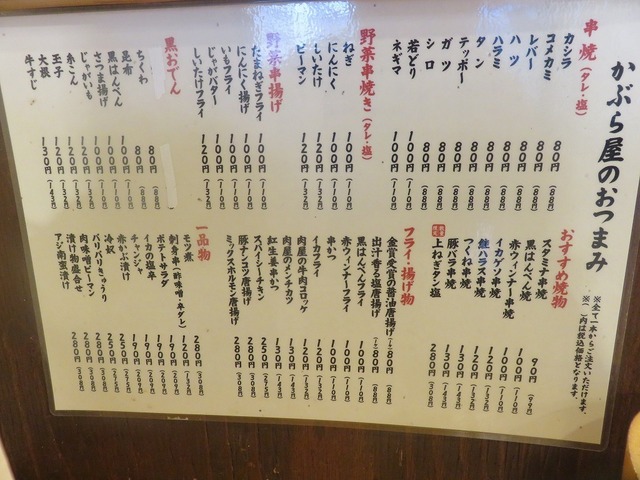 かぶら屋のおつまみ
※全て一本からご注文いただけます。
※( )内は税込価格となります。
串焼(タレ・塩)
カシラ 80円(88円)
コメカミ 80円(88円)
レバー 80円(88円)
ハツ 80円(88円)
ハラミ 80円(88円)
タン 80円(88円)
テッポー 80円(88円)
ガツ 80円(88円)
シロ 80円(88円)
若どり 100円(110円)
ネギマ 100円(110円)
野菜串焼き(タレ・塩)
ねぎ 100円(110円)
にんにく 100円(110円)
しいたけ 120円(132円)
ピーマン
野菜串揚げ
たまねぎフライ 100円(110円)
にんにく揚げ 100円(110円)
いもフライ 100円(110円)
じゃがバター 100円(110円)
しいたけフライ 120円(132円)
黒おでん
ちくわ 80円(88円)
昆布 80円(88円)
黒はんぺん 100円(110円)
さつま揚げ 100円(110円)
じゃがいも 100円(110円)
糸こん 120円(132円)
玉子 120円(132円)
大根 120円(132円)
牛すじ 130円(143円)
おすすめ焼物
スタミナ串焼 90円(99円)
黒はんぺん焼 100円(110円)
赤ウィンナー串焼 100円(110円)
イカゲソ串焼 120円(132円)
鮭ハラス串焼 120円(132円)
つくね串焼 130円(143円)
豚バラ串焼 130円(143円)
上ねぎタン塩 280円(308円)
フライ・揚げ物
金賞受賞の醤油唐揚げ(一ヶ) 80円(88円)
出汁香る塩唐揚げ(一ヶ) 80円(88円)
黒はんぺんフライ 100円(110円)
赤ウィンナーフライ 100円(110円)
串かつ 100円(110円)
イカフライ 120円(132円)
肉屋の牛肉コロッケ 120円(132円)
肉屋のメンチカツ
紅生姜串かつ 130円(143円)
スパイシーチキン 250円(275円)
豚ナンコツ唐揚げ 280円(308円)
ミックスホルモン唐揚げ 280円(308円)
一品物
モツ煮 280円(308円)
刺身串(酢味噌・辛ダレ) 120円(132円)
ポテトサラダ 190円(209円)
イカの塩辛 190円(209円)
チャンジャ 190円(209円)
赤かぶ漬け
冷奴 250円(275円)
バリバリきゅうり 250円(275円)
肉味噌ピーマン 280円(308円)
漬け物盛合せ 280円(308円)
アジ南蛮漬け 280円(308円)